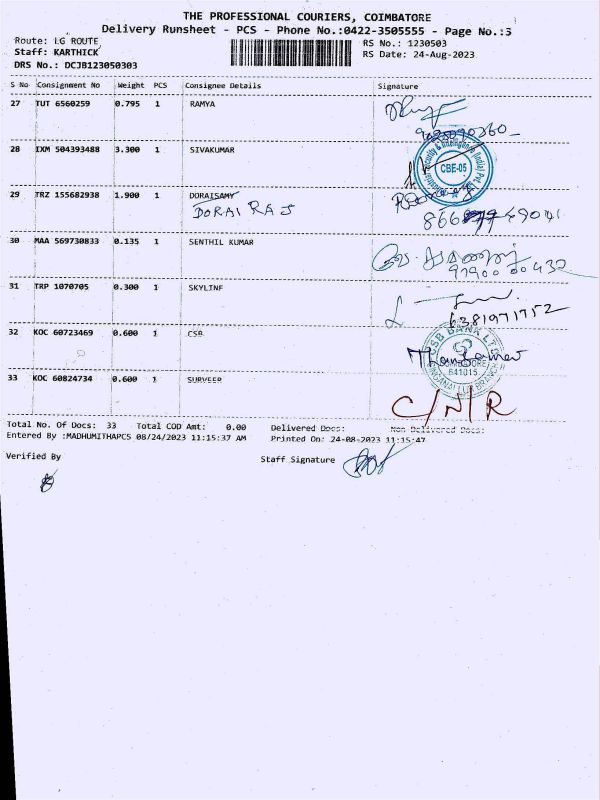 THE PROFESSIONAL COURIERS, COIMBATORE
Delivery Runsheet - PCS - Phone No.:0422-3505555 - Page No.:3
Route: LG ROUTE
RS No.: 1230503
Staff: KARTHICK
RS Date: 24-Aug-2023
DRS No.: DCJB123050303
S No Consignment No Weight PCS Consignee Details Signature
27 TUT 6560259 0.795 1 RAMYA
28 IXM 504393488 3.300 1 SIVAKUMAR
CBE-05
29 TRZ 155682938 1.900 1 DORAISAMY
DORAI RAJ
30 MAA 569730833 0.135 1 SENTHIL KUMAR
97900 00432
31 TRP 1070705 0.300 1 SKYLINE
6381971752
32 KOC 60723469 0.600 1 CSB
CSB BANK LTD
641015
33 KOC 60824734 0.600 1 SURVEER
C/N/R
Total No. Of Docs: 33 Total COD Amt: 0.00 Delivered Docs: Non Delivered Docs:
Entered By :MADHUMITHAPCS 08/24/2023 11:15:37 AM Printed On: 24-08-2023 11:15:47
Verified By
Staff Signature